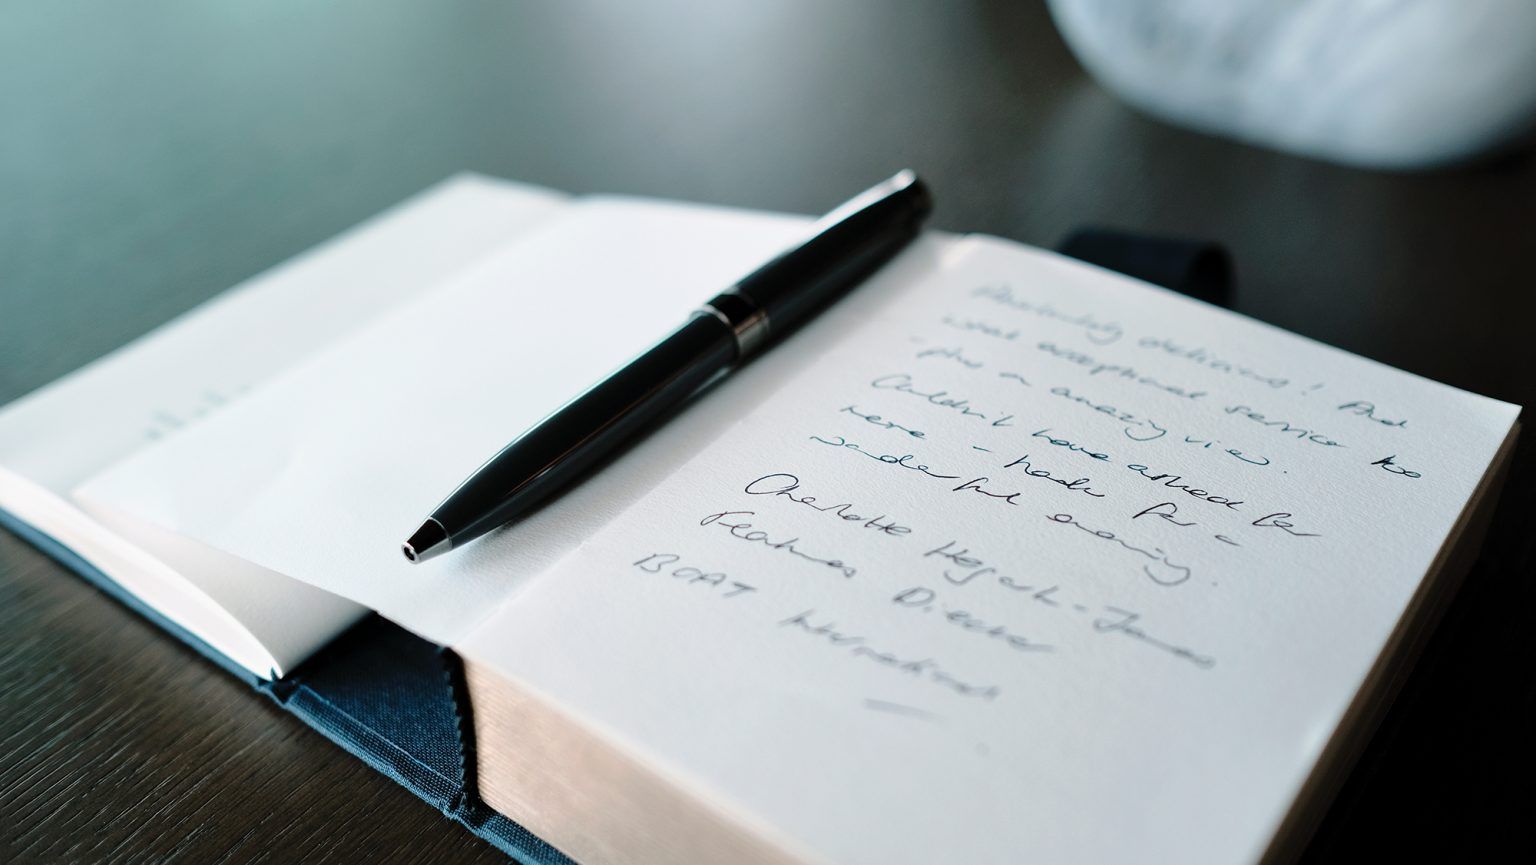 Absolutely delicious! And
what exceptional service to
- plus an amazing view.
Couldn't have asked for
more - thanks for a
wonderful evening.
Charlotte Hogarth-Jones
Features Director
BOAT International